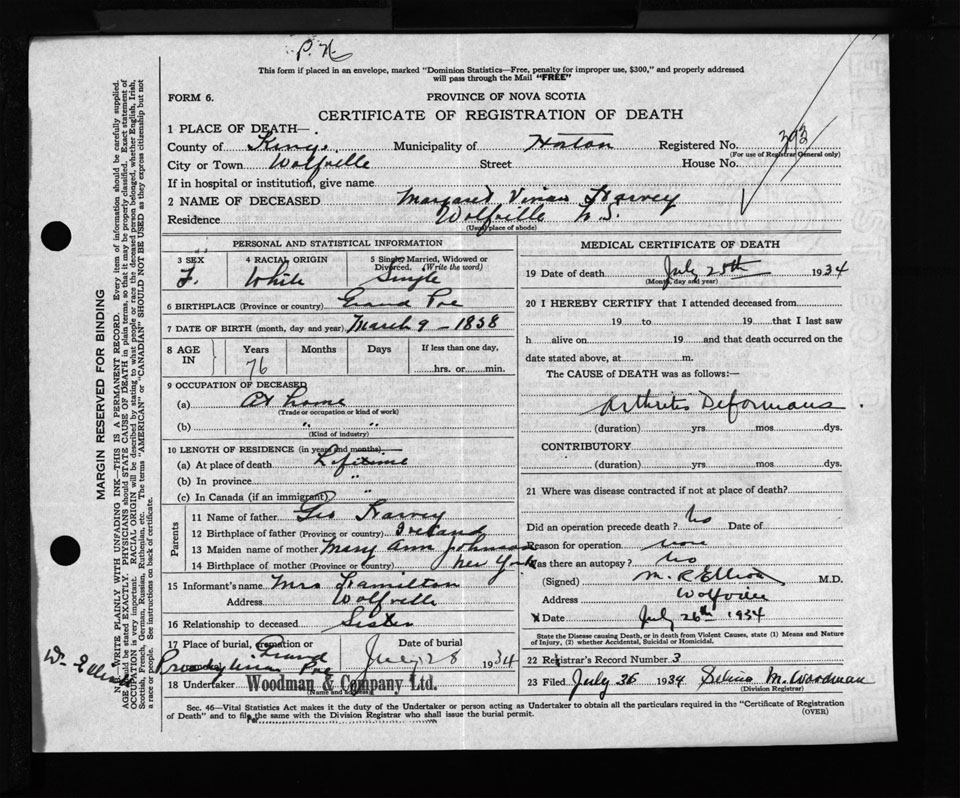 P. N
This form if placed in an envelope, marked "Dominion Statistics—Free, penalty for improper use, $300," and properly addressed
will pass through the Mail "FREE"
FORM 6.
PROVINCE OF NOVA SCOTIA
CERTIFICATE OF REGISTRATION OF DEATH
1 PLACE OF DEATH—
County of Kings Municipality of Horton Registered No. 393
(For use of Registrar General only)
City or Town Wolfville Street House No.
If in hospital or institution, give name
2 NAME OF DECEASED Margaret Harvey
Residence Wolfville N.S.
(Usual place of abode)
PERSONAL AND STATISTICAL INFORMATION
3 SEX 4 RACIAL ORIGIN 5 Single, Married, Widowed or Divorced. (Write the word)
F. White Single
6 BIRTHPLACE (Province or country) Grand Pre
7 DATE OF BIRTH (month, day and year) March 9 - 1858
8 AGE IN Years Months Days If less than one day,
76 hrs. or min.
9 OCCUPATION OF DECEASED
(a) At home
(Trade or occupation or kind of work)
(b) " "
(Kind of industry)
10 LENGTH OF RESIDENCE (in years and months)
(a) At place of death Lifetime
(b) In province "
(c) In Canada (if an immigrant) "
Parents
11 Name of father Geo Harvey
12 Birthplace of father (Province or country) Ireland
13 Maiden name of mother Mary Ann Johnson
14 Birthplace of mother (Province or country) New York
15 Informant's name Mrs Hamilton
Address Wolfville
16 Relationship to deceased Sister
17 Place of burial, cremation or Date of burial
Grand Pre July 28 1934
18 Undertaker Woodman & Company Ltd.
(Name and address)
MEDICAL CERTIFICATE OF DEATH
19 Date of death July 25th 1934
(Month, day and year)
20 I HEREBY CERTIFY that I attended deceased from
19 to 19 that I last saw
h alive on 19 and that death occurred on the
date stated above, at m.
The CAUSE of DEATH was as follows:—
Arthritis Deformans
(duration) yrs. mos. dys.
CONTRIBUTORY
(duration) yrs. mos. dys.
21 Where was disease contracted if not at place of death?
Did an operation precede death? No Date of
Reason for operation none
Was there an autopsy? No
(Signed) M. R. Elliott M.D.
Address Wolfville
X Date July 26th 1934
State the Disease causing Death, or in death from Violent Causes, state (1) Means and Nature
of Injury, (2) whether Accidental, Suicidal or Homicidal.
22 Registrar's Record Number 3
23 Filed July 1934 M. Woodman
(Division Registrar)
Sec. 46—Vital Statistics Act makes it the duty of the Undertaker or person acting as Undertaker to obtain all the particulars required in the "Certificate of Registration
of Death" and to file the same with the Division Registrar who shall issue the burial permit. (OVER)
MARGIN RESERVED FOR BINDING
N.B.—WRITE PLAINLY WITH UNFADING INK—THIS IS A PERMANENT RECORD. Every item of information should be carefully supplied.
AGE should be stated EXACTLY. PHYSICIANS should STATE CAUSE OF DEATH in plain terms, so that it may be properly classified. Exact statement of
OCCUPATION is very important. RACIAL ORIGIN will be described by stating to what people or race the deceased person belonged, whether English, Irish,
Scottish, French, German, Russian, Ruthenian, etc. The terms "AMERICAN" or "CANADIAN" SHOULD NOT BE USED as they express citizenship but not
a race or people. See instructions on back of certificate.